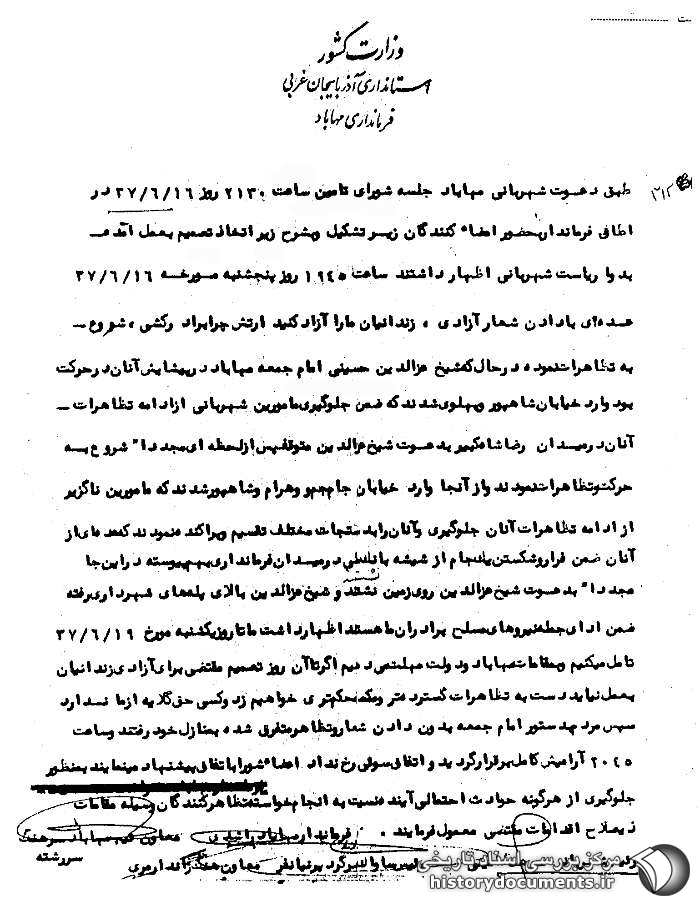 وزارت کشور
استانداری آذربایجان غربی
فرمانداری مهاباد
طبق دعوت شهربانی مهاباد جلسه شورای تامین ساعت ۲۱۳۰ روز ۳۷/۶/۱۶ در
اطاق فرماندار بحضور امضاء کنندگان زیر تشکیل و بشرح زیر اتخاذ تصمیم بعمل آمد –
بدوا ریاست شهربانی اظهار داشتند ساعت ۱۹۴۵ روز پنجشنبه مورخه ۳۷/۶/۱۶
عده‌ای با دادن شعار آزادی ، زندانیان ما را آزاد کنید ارتش چرا برادر کشی ، شروع –
به تظاهرات نموده در حالی که شیخ عزالدین حسینی امام جمعه مهاباد در پیشاپیش آنان در حرکت
بود وارد خیابان شاهپور و پهلوی شدند که ضمن جلوگیری مامورین شهربانی از ادامه تظاهرات –
آنان در میدان رضا شاه کبیر بدعوت شیخ عزالدین متوقف پس از لحظه ای مجددا" شروع به
حرکت و تظاهرات نمودند و از آنجا وارد خیابان جام جم و وهرام و شاهپور شدند که مامورین ناگزیر
از ادامه تظاهرات آنان جلوگیری و آنان را به دستجات مختلف تقسیم و پراکنده نمودند که عده‌ای از
آنان ضمن فرار و شکستن پنجاه از شیشه بانکملی در میدان فرمانداری بهم پیوسته در این جا
مجددا" بدعوت شیخ عزالدین روی زمین نشستند و شیخ عزالدین بالای پله‌های شهرداری رفته
ضمن ادای جمله نیروهای مسلح برادران ما هستند اظهار داشت ما تا روز یکشنبه مورخ ۳۷/۶/۱۹
تامل میکنیم و بمقامات مهاباد و دولت مهلت میدهیم اگر تا آن روز تصمیم مقتضی برای آزادی زندانیان
بعمل نیاید دست به تظاهرات گسترده تر و محکم تری خواهیم زد و کسی حق گلایه از ما ندارد
سپس مردم بدستور امام جمعه بدون دادن شعار و تظاهر متفرق شده بمنازل خود رفتند و ساعت
۲۰۴۵ آرامش کامل برقرار گردید و اتفاق سوئی رخ نداد اعضاء شورا باتفاق پیشنهاد مینمایند بمنظور
جلوگیری از هرگونه حوادث احتمالی آینده نسبت به انجام خواسته تظاهر کنندگان وسیله مقامات
ذیصلاح اقدامات مقتضی معمول فرمایند .
فرماندار مهاباد معاون مهاباد سرهنگ
سررشته
معاون هنگ ژاندارمری
مرکز بررسی اسناد تاریخی
historydocuments.ir